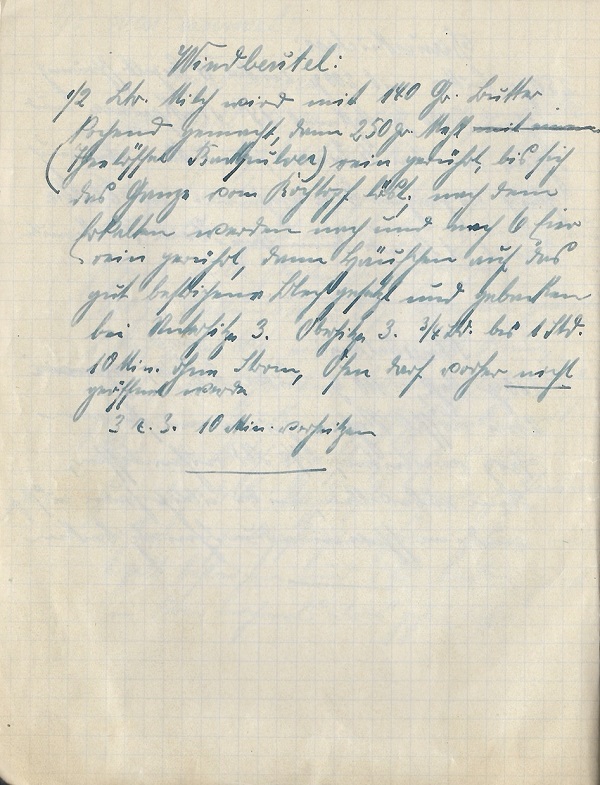 Windbeutel:
1/2 Ltr. Milch wird mit 140 Gr. Butter
kochend gemacht, dann 250 gr. Mehl mit einem
(Theelöffel Backpulver) rein gerührt, bis sich
das Ganze vom Kochtopf löst, nach dem
Erkalten werden nach und nach 6 Eier
rein gerührt, dann Häufchen auf das
gut bestrichene Blech gesetzt und gebacken
bei Unterhitze 3. Oberhitze 3. 3/4 Std. bis 1 Std.
10 Min. ohne Strom, Ofen darf vorher nicht
geöffnet werde
3 x. 3. 10 Min. vorheitzen